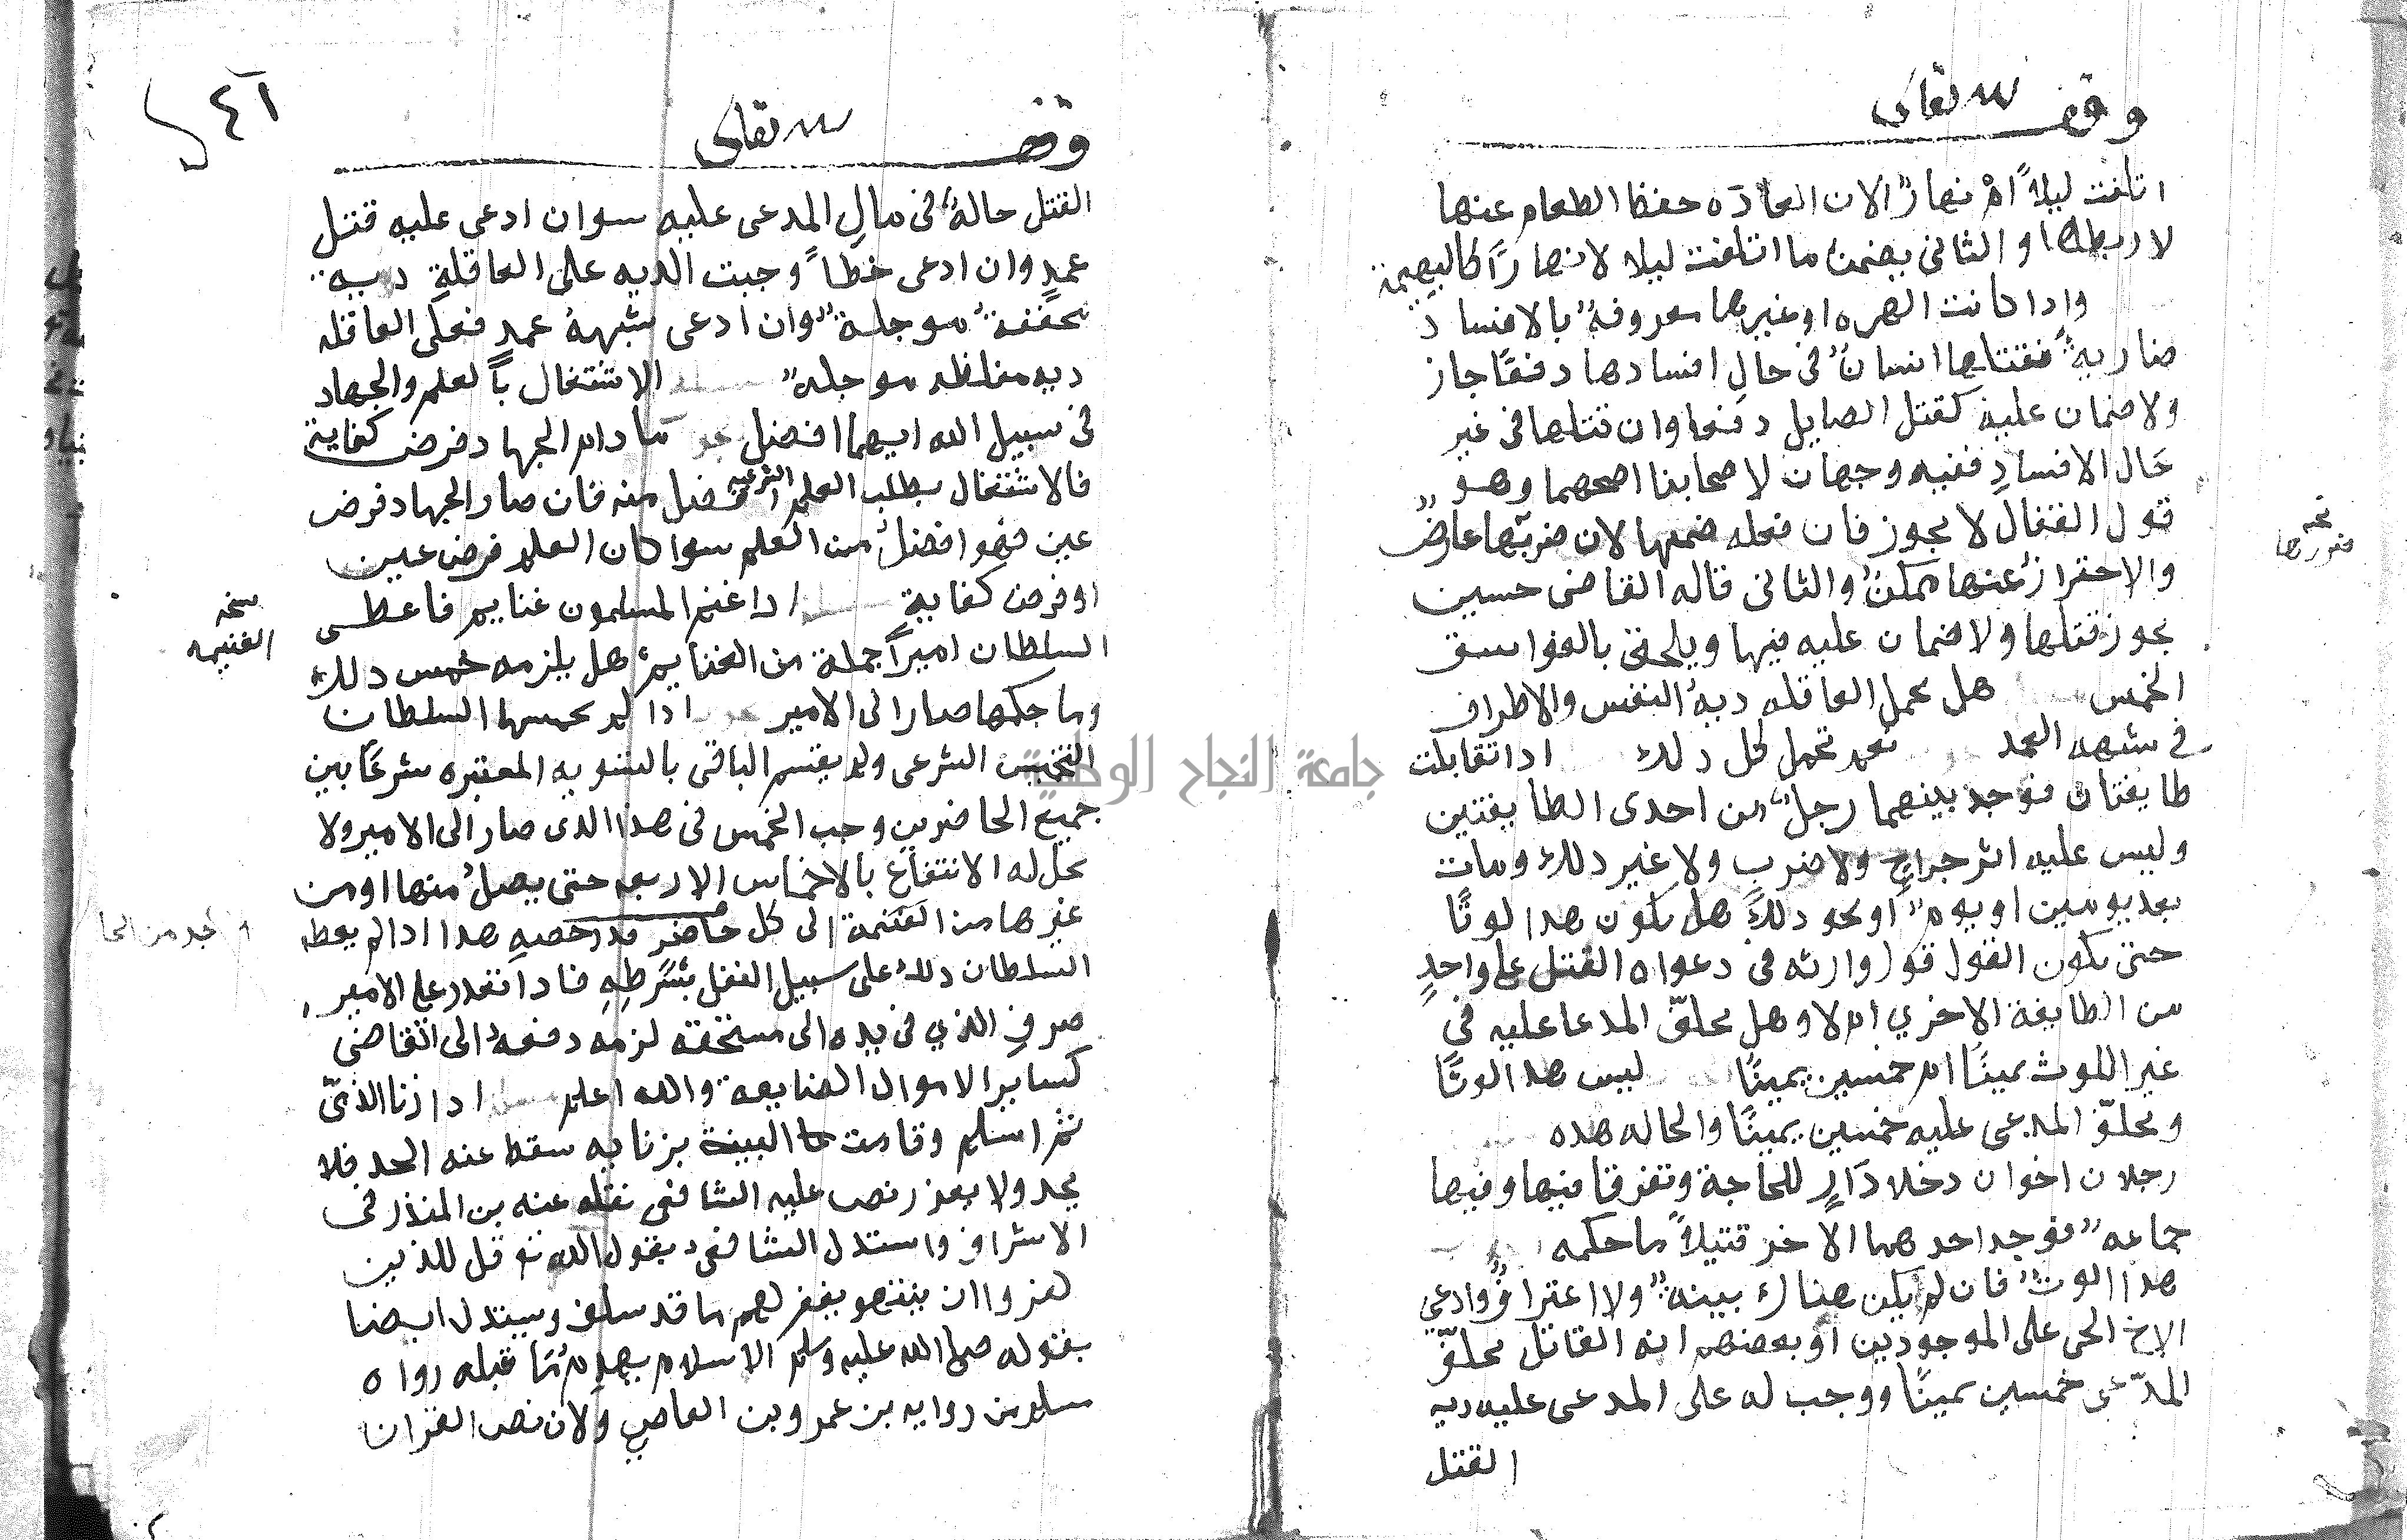 وقف لله تعالى
اتلفت ليلاً ام نهارًا لان العادَه حفظ الطعام عنها
لا ربطها والثاني يضمنُ ما اتلفت ليلا لا نهارًا كالبهيمة
وادا كانت الهره او غيرها معروفةٌ بالافساد
ضاريةٌ فقتلها انسانٌ في حالِ افسادها دفعًا جاز
ولا ضمان عليه كقتل الصايل دفعا وان قتلها في غير
حَال الافسادِ ففيه وجهان لاصحابنا اصحهما وهو
قول القفال لا يجوز فان فعله ضمنها لان ضريّها عارضٌ
والاحترازُ عنها ممكنٌ والثاني قاله القاضي حسين
يجوز قتلها ولا ضمان عليه فيها ويلحق بالفواسق
الخمس هل يحمل العاقله ديةُ النفس والاطراف
في شبهه العمد نعم تحمل كل دلك ادا تقابلت
طايفتان فوجد بينهما رجلٌ من احدى الطايفتين
وليس عليه اثر جراحٍ ولا ضربٍ ولا غير دلك ومات
بعد يومين او يومٍ او نحو دلك هل يكون هدا لوثًا
حتى يكون القول قول وارثه في دعواه القتل على واحدٍ
من الطايفة الاخري ام لا وهل يحلفّ المدعا عليه في
غير اللوث يمينًا ام خمسين يمينًا ليس هدا لوثًا
ويحلفّ المدعى عليه خمسين يمينًا والحاله هده
رجلان اخوان دخلا دَارٍ للحاجة وتفرقا فيها وفيها
جماعه فوجد احدهما الاخر قتيلاً ما حكمه
هدا لوث فان لم يكن هناك بينه ولا اعترافٌ وادعي
الاخ الحي على الموجودين او بعضهم انه القاتل يحلفّ
المدّعى خمسين يمينًا ووجب له على المدعى عليه دية
القتل
نسخه
جامعة النجاح الوطنية
٤٦
وقف لله تعالى
القتل حالهٌ في مالِ المدعى عليه سوا ان ادعى عليه قتل
عمدٍ وان ادعى خطاً وجبت الديه على العاقلةِ ديه
مخففة موجلة وان ادعى شبهه عمدٍ فعلى العاقله
ديه مغلظه موجله الاشتغال بالعلم والجهاد
في سبيل الله ايهما افضل ما دام الجهاد فرض كفاية
فالاشتغال بطلب العلم الشرعيه افضل منه فان صار الجهاد فرض
عين فهو افضلُ من العلم سوا كان العلم فرض عين
او فرض كفاية ادا غنم المسلمون غنايم فاعطى
السلطان اميرًا جملة من الغنايم هل يلزمه خمس دلك
وما حكمها صار الى الامير ادا لم يخمسها السلطان
التخميس الشرعى ولم يقسم الباقى بالتسويه المعتبره شرعًا بين
جميع الحاضرين وجب الخمس في هذا الدى صار الى الامير ولا
يحل له الانتفاع بالاخماس الاربعه حتى يصلُ منها او من
غيرها من الغنيمة الى كل حاضرٍ قدر حصته هدا ادا لم يعطه
السلطان دلك على سبيل النفل بشرَطِهِ فادا تعدر على الامير
صرف الذي في يده الى مستحقه لزمه دفعهُ الى القاضى
كساير الاموال الضايعة والله اعلم ادا زنا الذميّ
ثم اسلم وقامت البينة بزنايه سقط عنه الحد فلا
يحد ولا يعزر نص عليه الشافعى نقله عنه بن المنذر في
الاشراف واستدل الشافعى بقول الله تع قل للذين
كفروا ان ينتهو يغفر لهم ما قد سلف ويستدل ايضا
بقوله صلى الله عليه وسلم الاسلام يهدمُ ما قبله رواه
مسلم من روايه بن عمرو بن العاصِ ولان نص القران
نسخه
الغنيمه